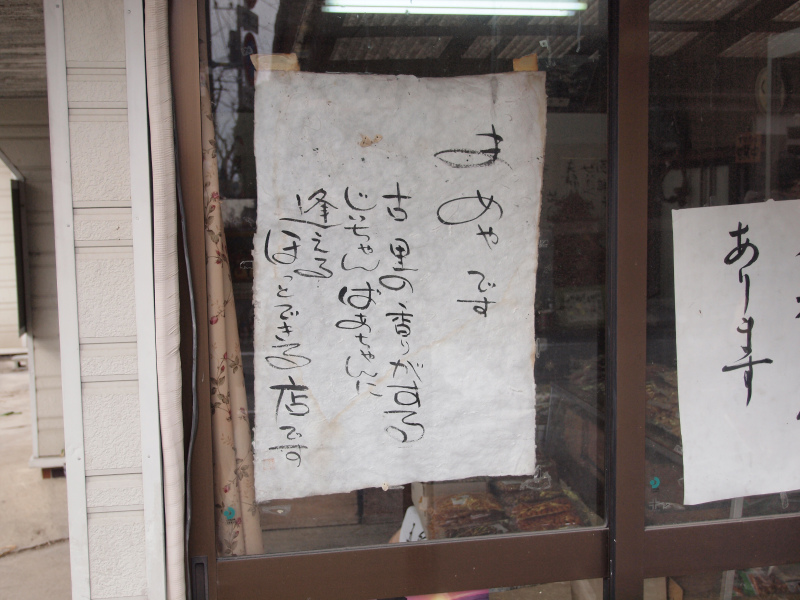 あります
まめやです
古里の香りがする
じいちゃんばあちゃんに
逢える
ほっとできる店です